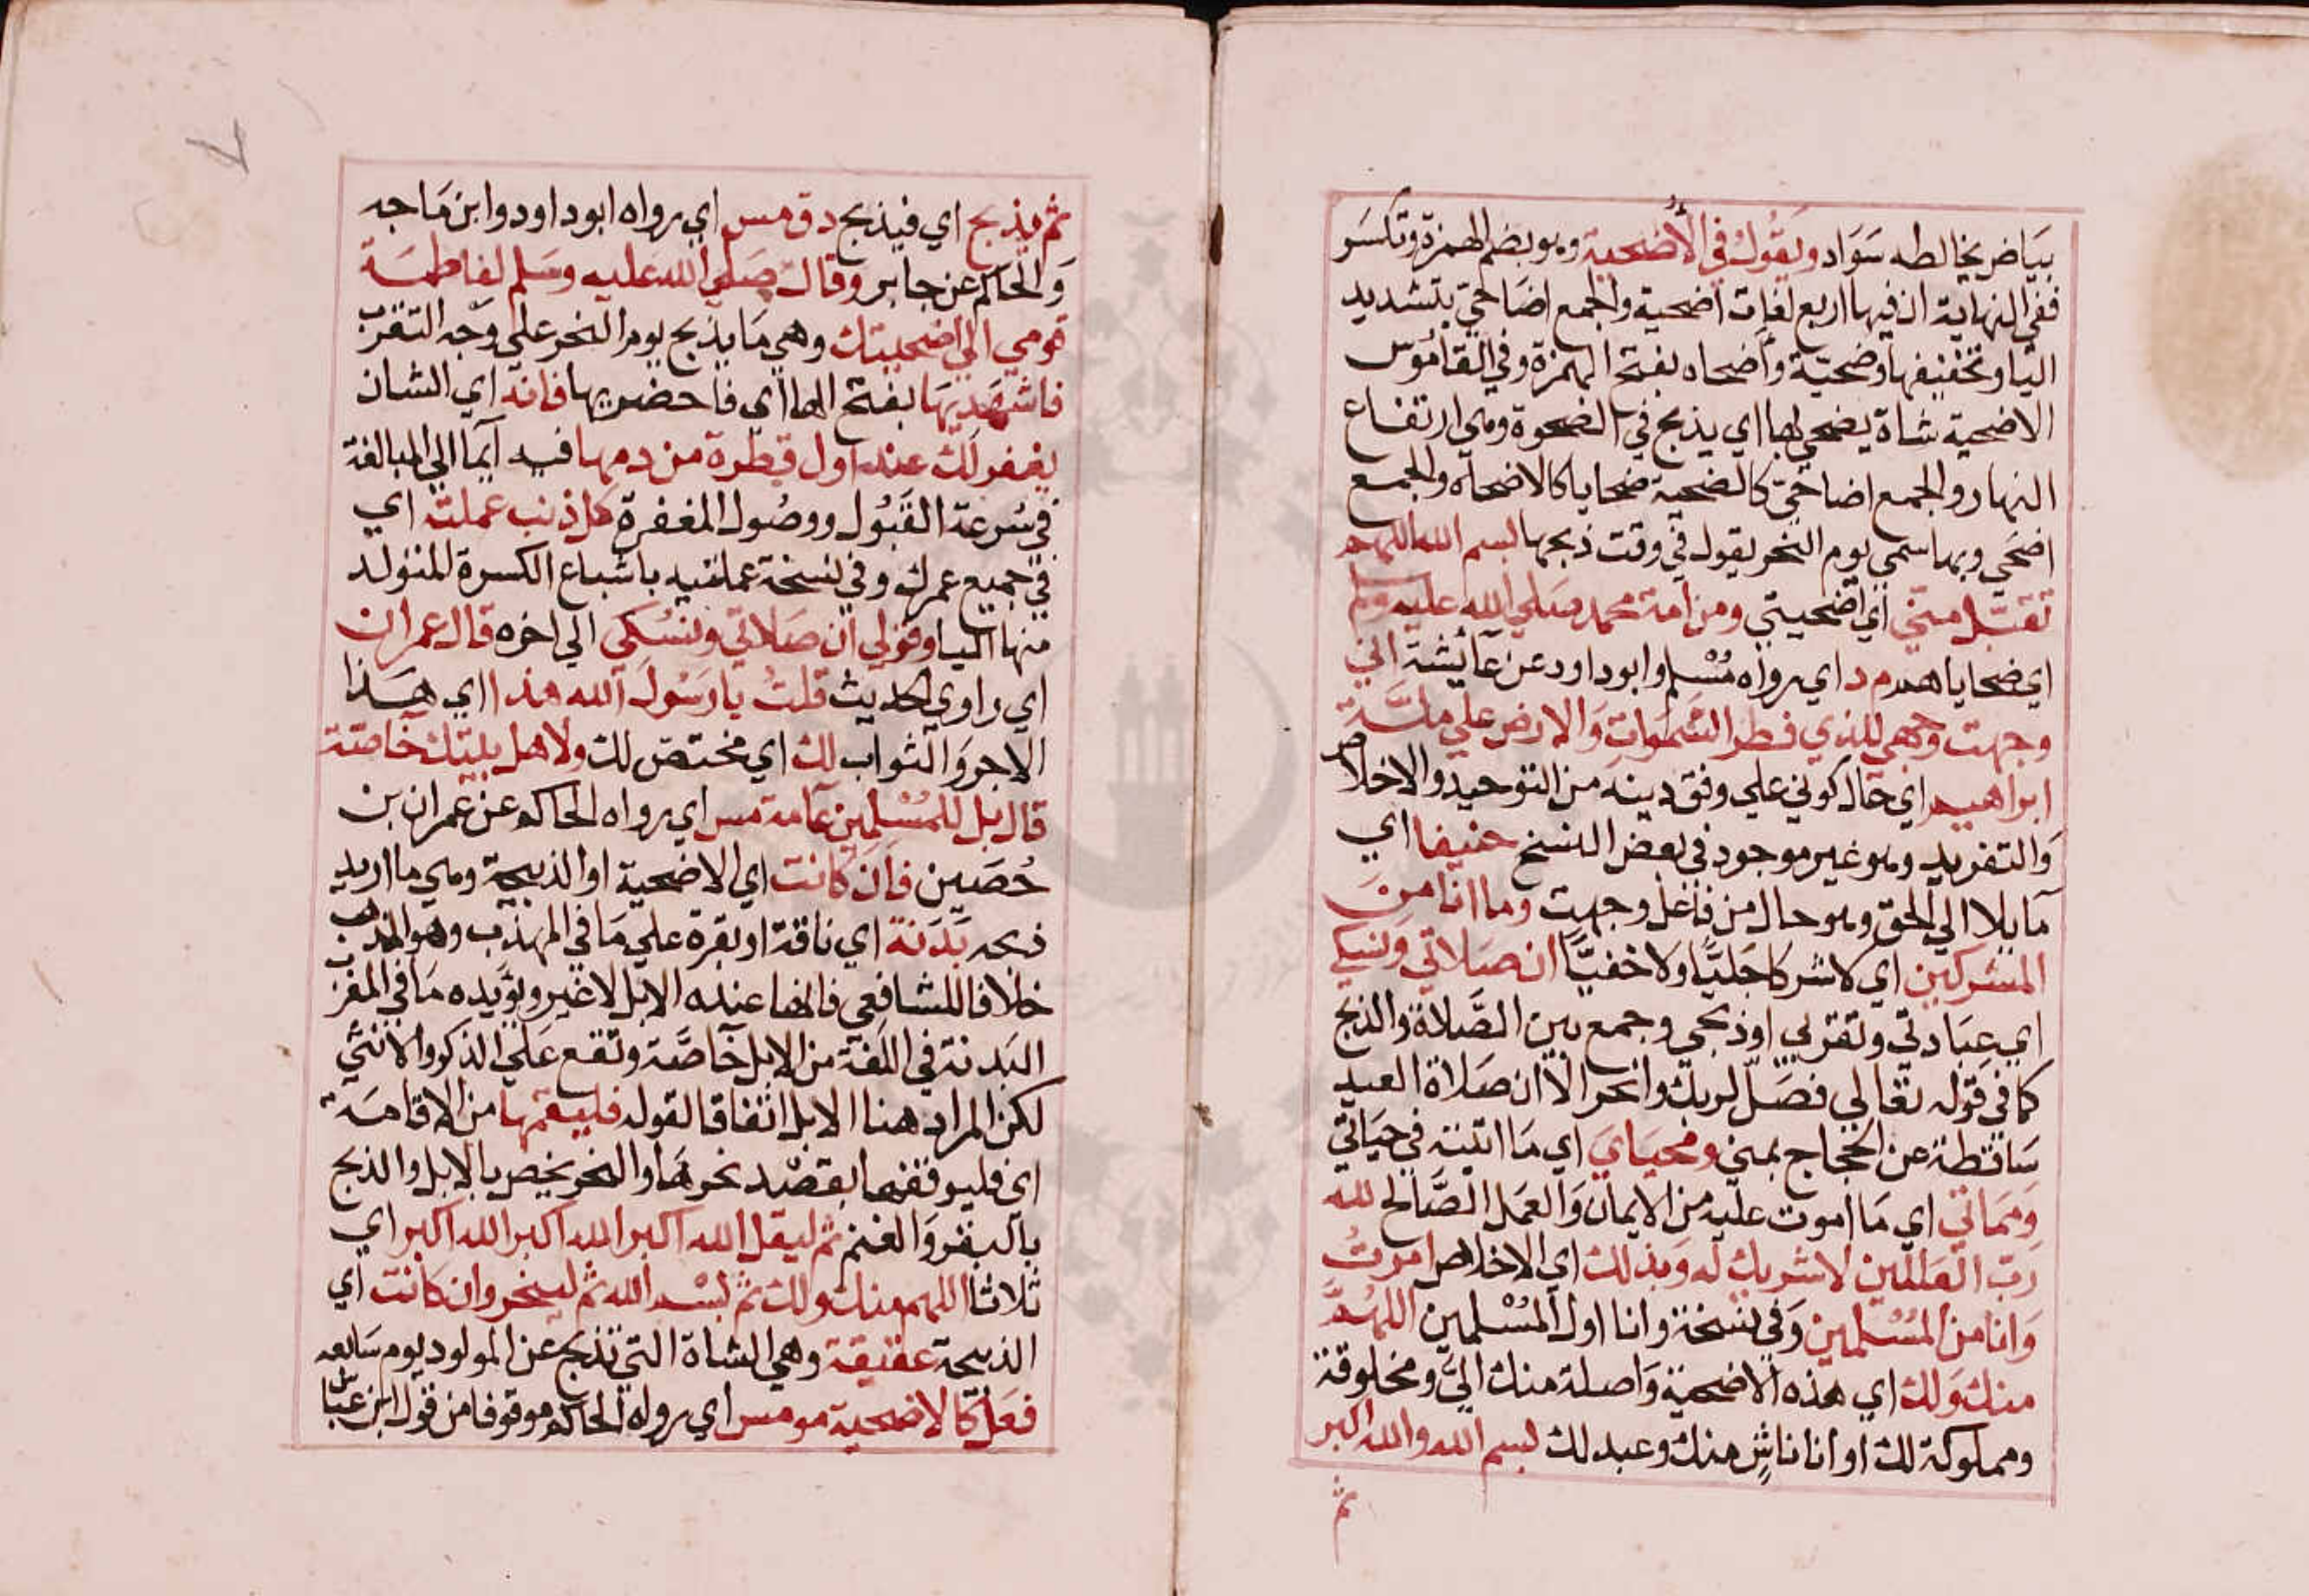 بيَاض يخالطه سَوَاد ويَقُولُ في الأُضحية وهو بضم الهمزة وتكسَر
ففي النهاية ان فيها اربع لغات اضحية والجمع اضَاحيّ بتشديد
اليا وتخفيفها وضحيّة وأضحاه بفتح الهمزة وفي القامُوس
الاضحية شاة يضحي بها اي يذبح في الضحوة وهي ارتفاع
النهار والجمع اضاحيّ كالضحية ضحايا كالاضحاه والجمع
اضحَي وبها سمي يوم النحر يقول في وقت ذبحها بسم الله اللهم
تقبّل منيّ اي اضحيتي ومن امة محمد صلي الله عليه وسلم
اي ضحاياهم م د اي رواه مُسْلم وابو داود عن عَائشة اني
وجهت وجهي للذي فطر السَّمَوَات وَالارض علي ملَّة
ابراهيم اي حَال كوني علي وفق دينه من التوحيد والاخلاص
وَالتفريد وهو غير موجود في بعض النسخ حنيفا اي
مَايلا الي الحق وهو حال من فاعل وجهت وما انا مِنَ
المشركين اي لا شركا جَليًّا ولا خفيًّا ان صَلاتي وَنسكي
اي عبَادتي وتقربي او ذبحي وجمع بين الصَّلاة والذبح
كما في قوله تعَالي فصَلّ لربك وانحر الا ان صَلاة العيد
سَاقطة عن الحجّاج بمني ومحيَايَ اي مَا اتيته في حيَاتي
وَمَمَاتي اي مَا اموت عليه من الايمان وَالعمَل الصَّالح لله
رَبّ العَالمين لا شريك له وَبذلك اي الاخلاص امرتُ
وَانا من المُسْلمين وَفي نسخة وانا اول المُسْلمين اللهُمَّ
منك وَلك اي هذه الاضحية وَاصلة منك اليَّ ومخلوقة
ومملوكة لك او انا ناشٍ منك وعبد لك بسم الله والله اكبر
ثم
٧
ثم يذبح اي فيذبح د ق مس اي رواه ابو داود وابن مَاجه
وَالحاكم عن جابر وقالَ صَلي الله عَليه وسَلم لفاطمَة
قومي الي اضحيتك وهي مَا يذبح يوم النحر علي وَجه التقرّب
فاشهَديهَا بفتح الها اي فاحضريها فانه اي الشان
يغفر لك عند اول قطرة من دمها فيه ايما الي المبالغة
في سُرعة القَبُول ووصُول المغفرة كل ذنب عملت اي
في جميع عمرك وفي نسخة عملتيه باشباع الكسرة المتولد
منها اليا وقولي ان صَلاتي ونسُكي الي اخره قال عمران
اي راوي الحديث قلتُ يا رَسُولَ الله هذا اي هَذا
الاجر وَالثواب لك اي مختص لك ولاهل بيتك خاصَّة
قال بل للمُسْلمين عَامة مس اي رواه الحاكم عن عمران بن
حُصَين فان كَانت اي الاضحية او الذبيحة وهي ما اريد
ذبحه بَدَنة اي ناقة او بقرة علي مَا في المهذب وهو المذهب
خلافا للشافعي فانها عنده الابل لا غير ويؤيده مَا في المغرب
البَدنة في اللغة من الابل خَاصَّة وتقع عَلي الذكر والانثي
لكن المراد هنا الابل اتفاقا لقوله فليقمها من الاقامَة
اي فليوقفها بقصْد نحرهَا والنحر يختص بالابل والذبح
بالبقر وَالغنم ثم ليقل الله اكبر الله اكبر الله اكبر اي
ثلاثا اللهم منك ولك ثم بسْم الله ثم لينحر وان كَانت اي
الذبيحة عقيقة وهي الشاة التي تذبح عن المولود يوم سَابعه
فعَل كَالاضحية مو مس اي رواه الحاكم موقوفا من قول ابن عبّاس